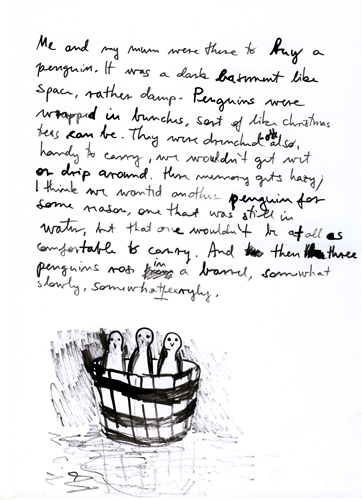 Me and my mum were there to buy a
penguin. It was a dark basment like
space, rather damp. Penguins were
wrapped in bunches, sort of like christmas
trees can be. They were drenched off also,
handy to carry, we wouldn't get wet
or drip around. Here memory gets hazy,
I think we wanted another penguin for
some reason, one that was still in
water, but that one wouldn't be at all as
comfortable to carry. And then three
penguins ros in a barrel, somewhat
slowly, somewhat eeryly.